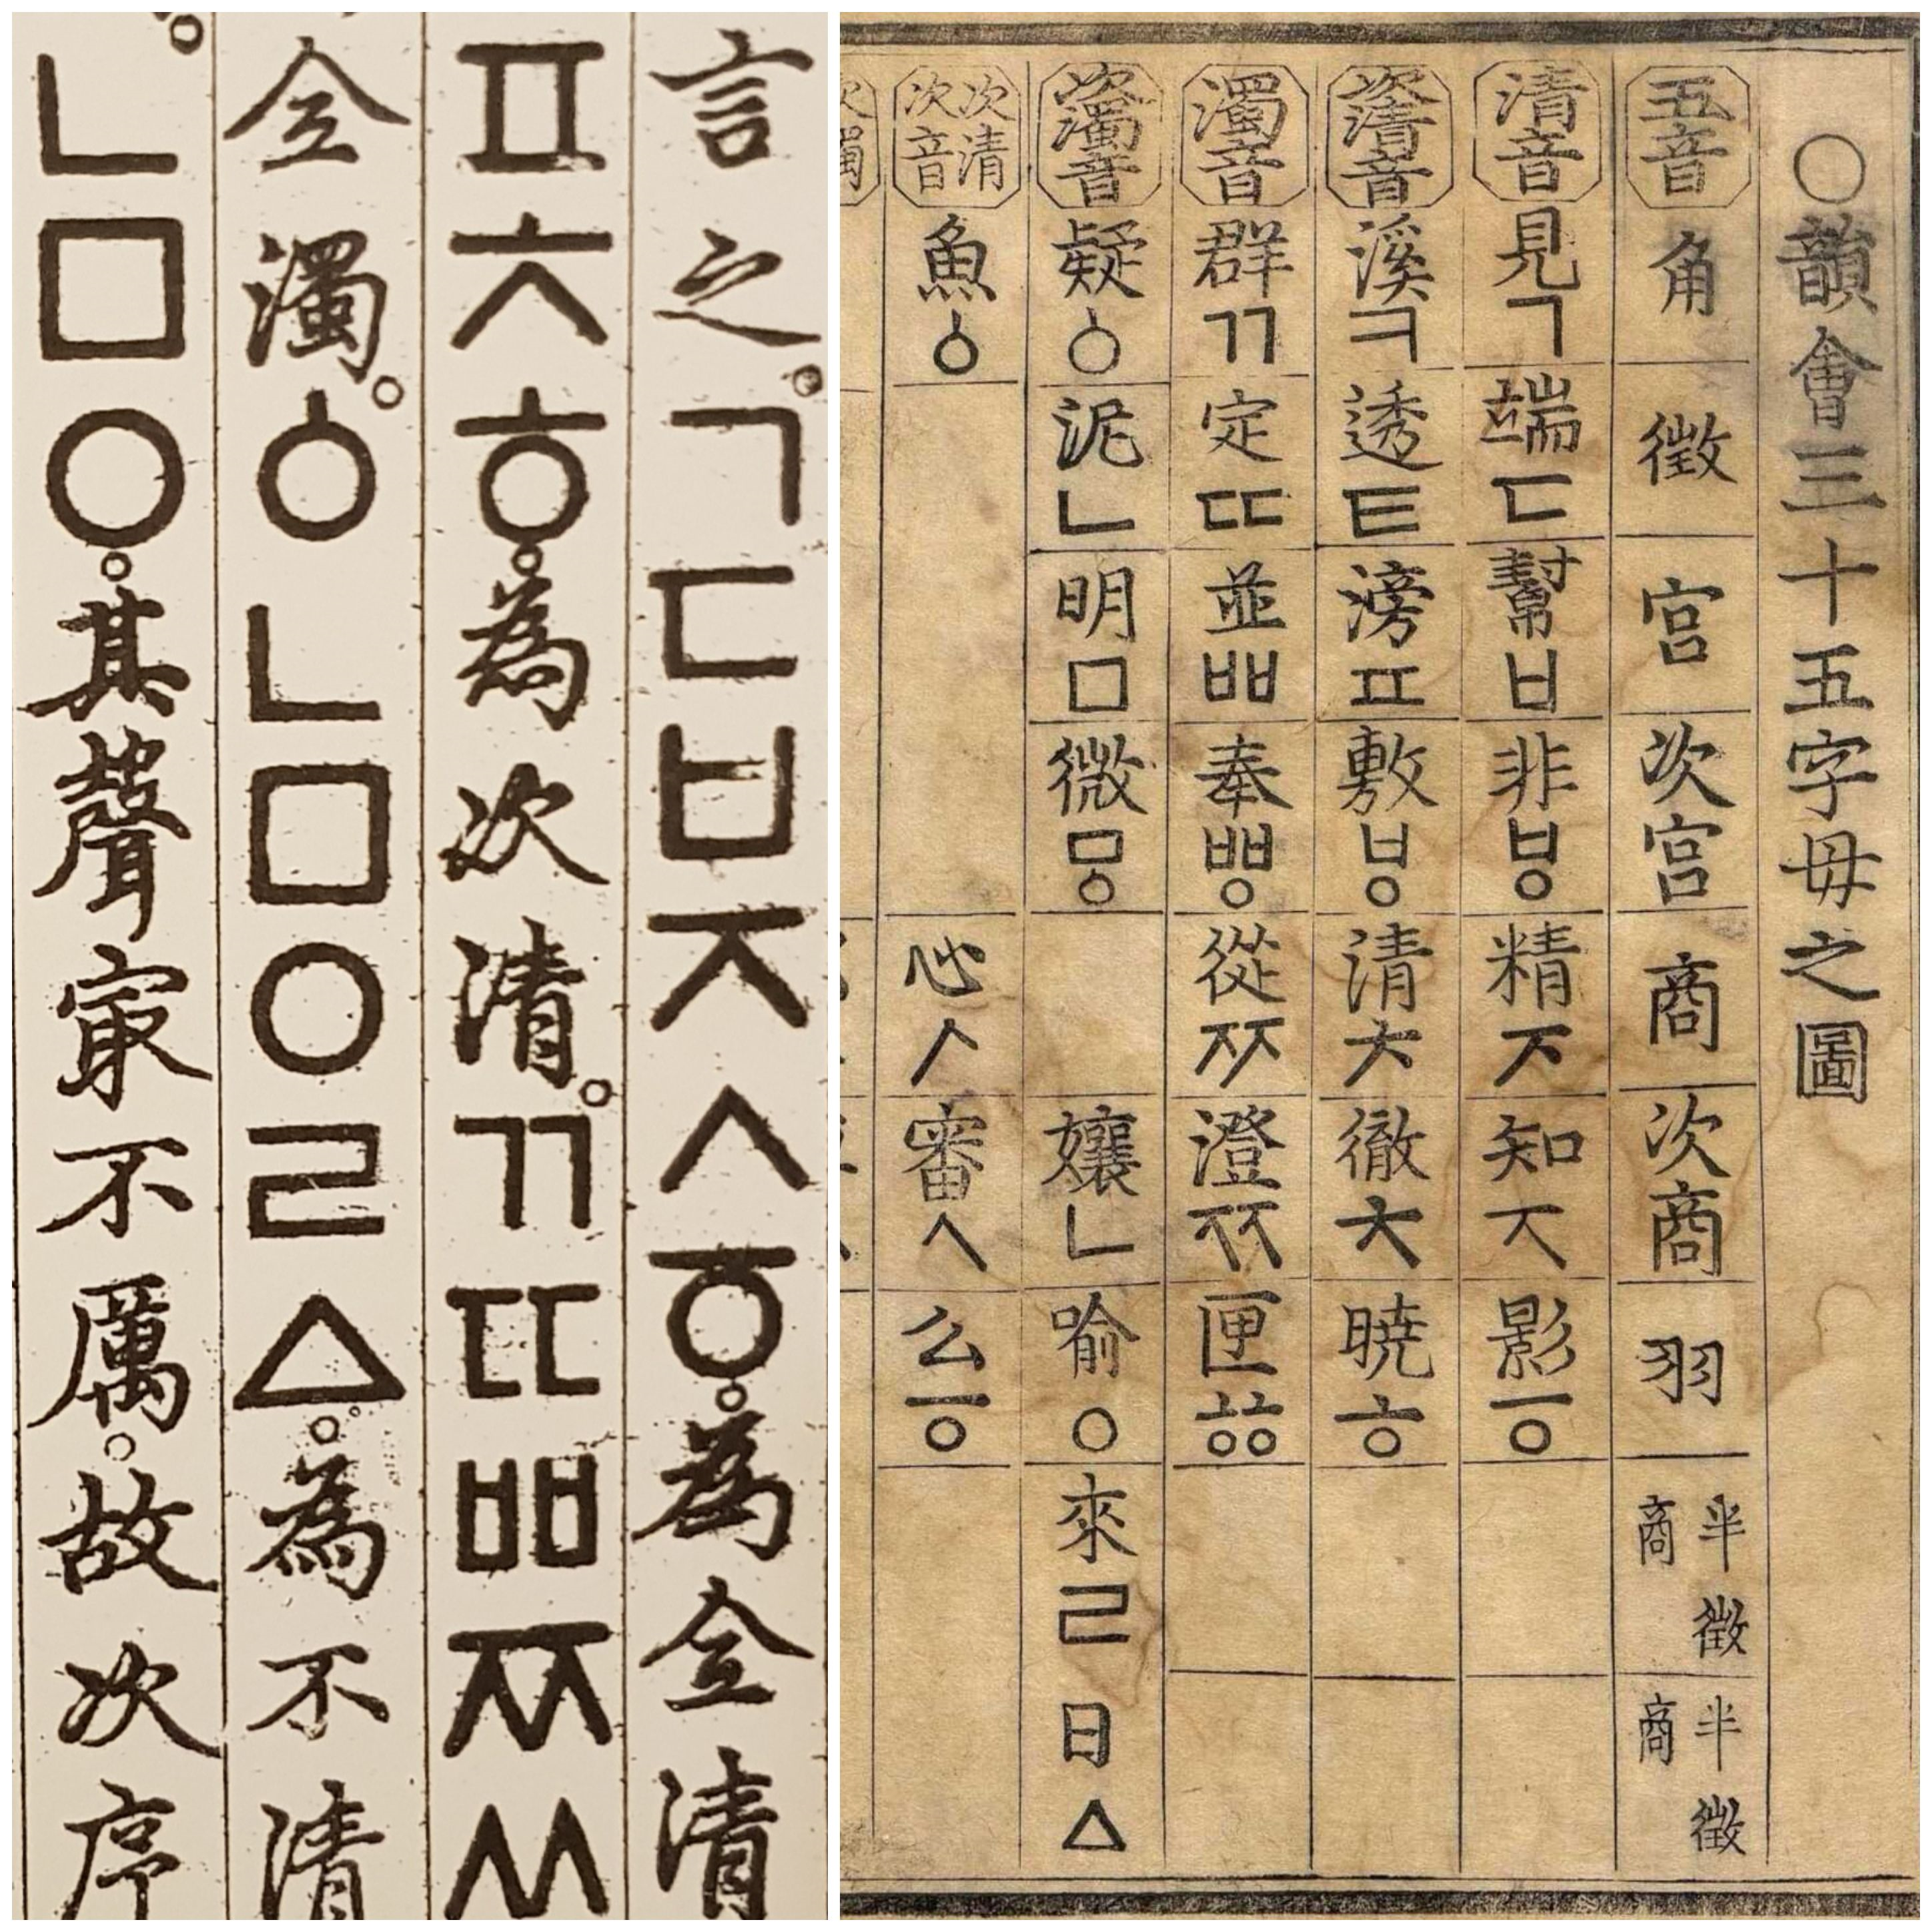 言之。ㄱㄷㅂㅈㅅㆆ。為全清
ㅍㅊㅎ。為次清。ㄲㄸㅃㅉㅆ
全濁。ㆁㄴㅁㅇㄹㅿ。為不清
ㄴㅁㅇ。其聲㝡不厲。故次序
○韻會三十五字母之圖
五音 角 徵 宮 次宮 商 次商 羽 半徵商 半徵商
清音 見ㄱ 端ㄷ 幫ㅂ 非ㅸ 精ᅎ 知ᅐ 影ㆆ
次清音 溪ㅋ 透ㅌ 滂ㅍ 敷ㅸ 清ᅔ 徹ᅕ 暁ㅎ
濁音 群ㄲ 定ㄸ 並ㅃ 奉ㅹ 從ᅏ 澄ᅑ 匣ㆅ
次濁音 疑ㆁ 泥ㄴ 明ㅁ 微ㅱ 孃ㄴ 喻ㅇ 來ㄹ 日ㅿ
次清次音 魚ㆁ 心ᄼ 審ᄾ 么ㆆ